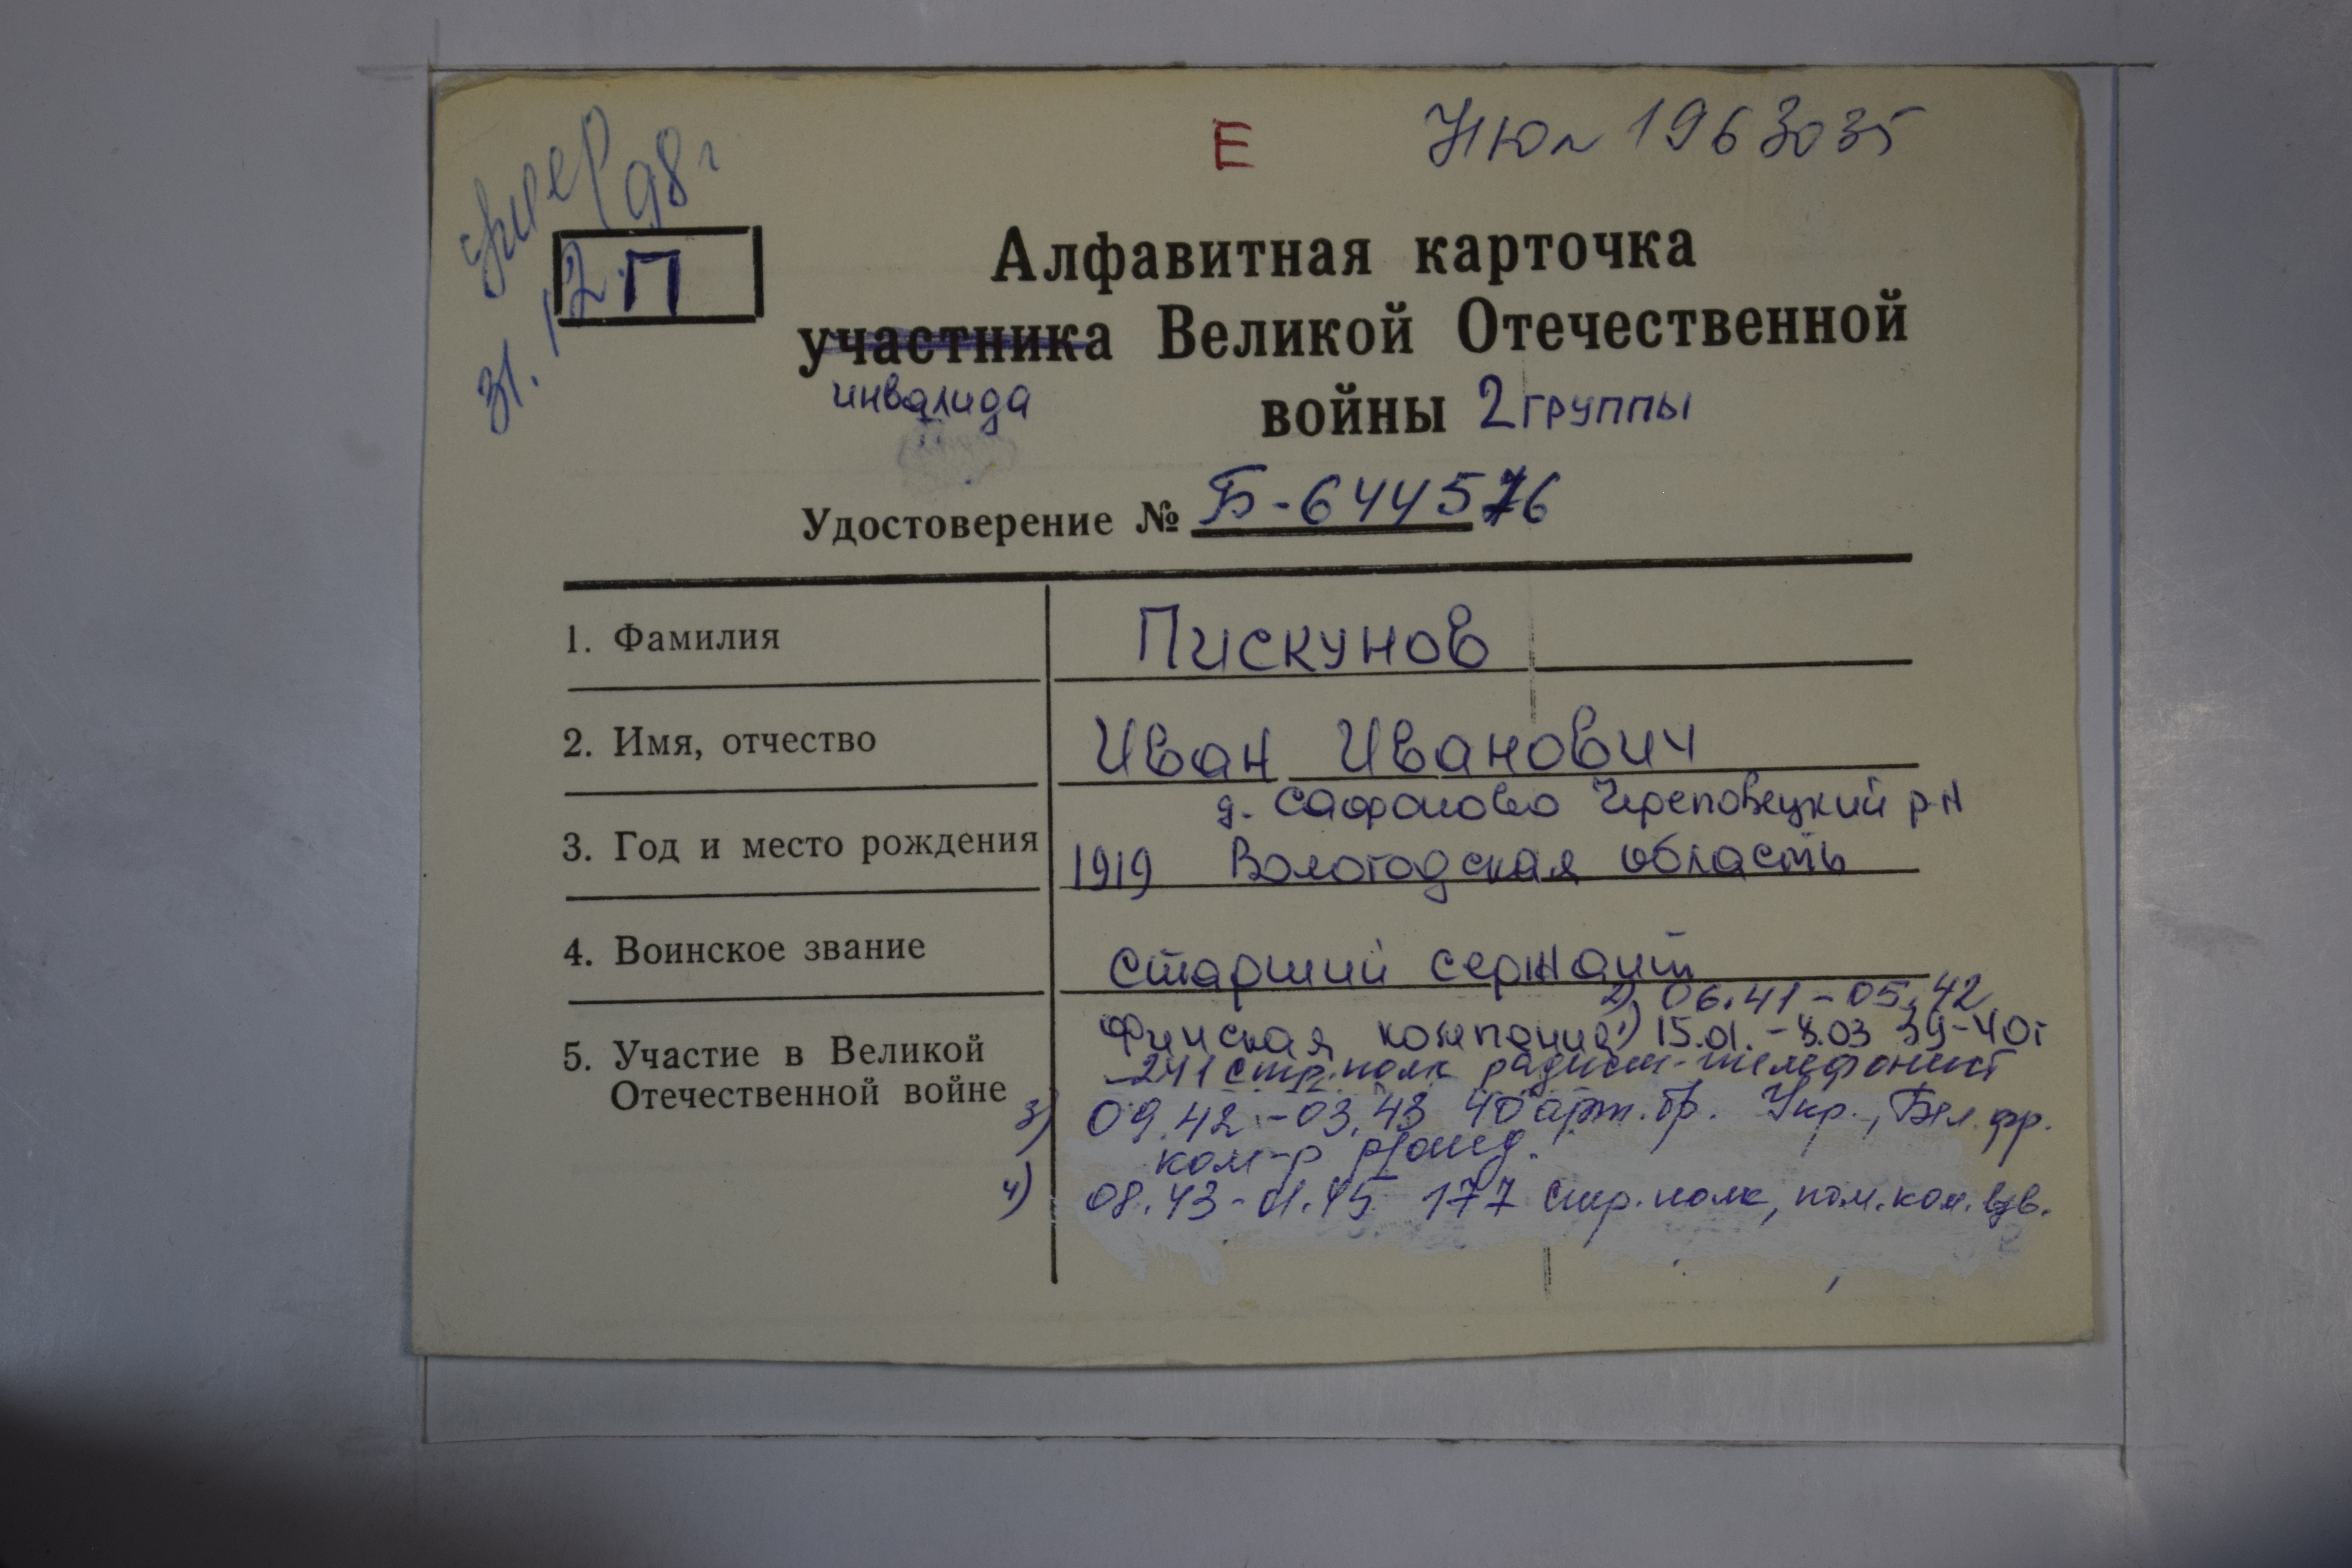 Е НЮл 1963035
умер
31.12.98г
П
Алфавитная карточка
участника Великой Отечественной
инвалида войны 2 группы
Удостоверение № Б-644576
1. Фамилия Пискунов
2. Имя, отчество Иван Иванович
д. Сафоново Череповецкий р-н
3. Год и место рождения 1919 Вологодская область
4. Воинское звание Старший сержант
2) 06.41-05.42
5. Участие в Великой Финская компания 1) 15.01.-8.03 39-40г
Отечественной войне -241 стр. полк радист-телефонист
3) 09.42-03.43 40 арт. бр. Укр., Бел. фр.
ком-р
4) 08.43-01.45 177 стр. полк, пом. ком. взв.